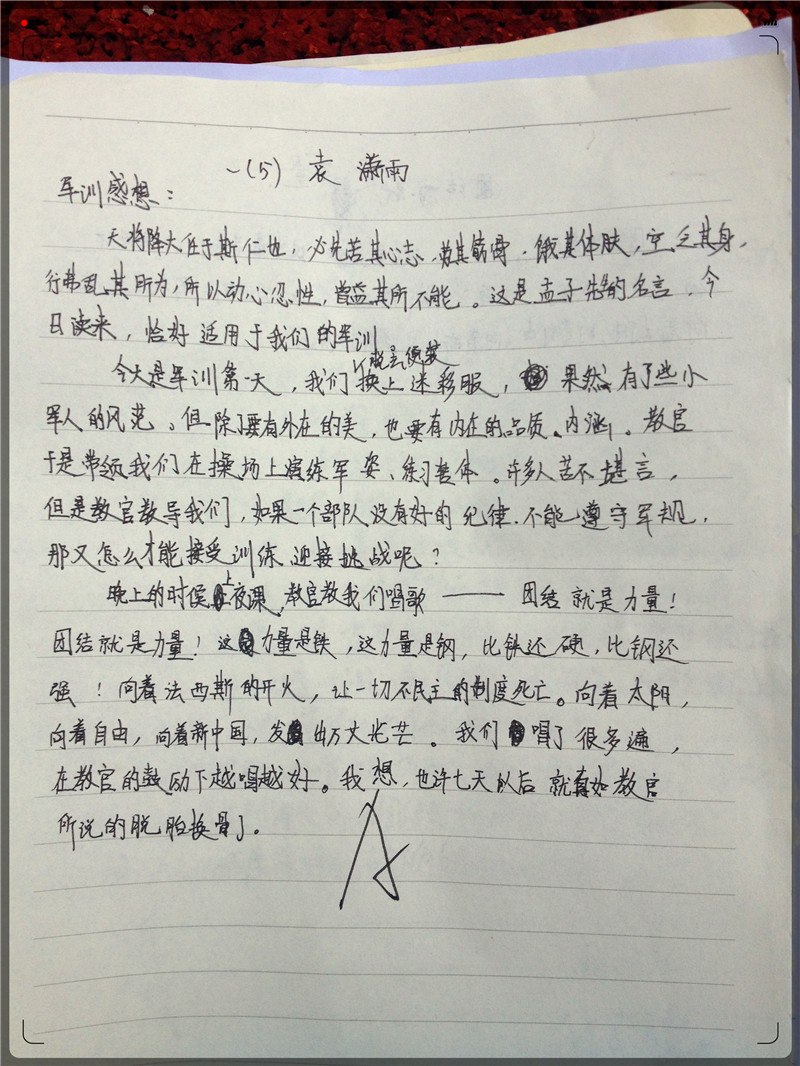 一(5) 袁潇雨
军训感想：
天将降大任于斯仁也，必先苦其心志，劳其筋骨，饿其体肤，空乏其身，
行弗乱其所为，所以动心忍性，曾益其所不能。这是孟子先的名言，今
日读来，恰好适用于我们的军训
脱去便装
今天是军训第一天，我们换上迷彩服，果然有了些小
军人的风范。但除了要有外在的美，也要有内在的品质、内涵。教官
于是带领我们在操场上演练军姿、练习整体。许多人苦不堪言，
但是教官教导我们，如果一个部队没有好的纪律，不能遵守军规，
那又怎么才能接受训练迎接挑战呢？
晚上的时候上夜课，教官教我们唱歌——团结就是力量！
团结就是力量！这力量是铁，这力量是钢，比铁还硬，比钢还
强！向着法西斯的开火，让一切不民主的制度死亡。向着太阳，
向着自由，向着新中国，发出万丈光芒。我们唱了很多遍，
在教官的鼓励下越唱越好。我想，也许七天以后就真如教官
所说的脱胎换骨了。
A